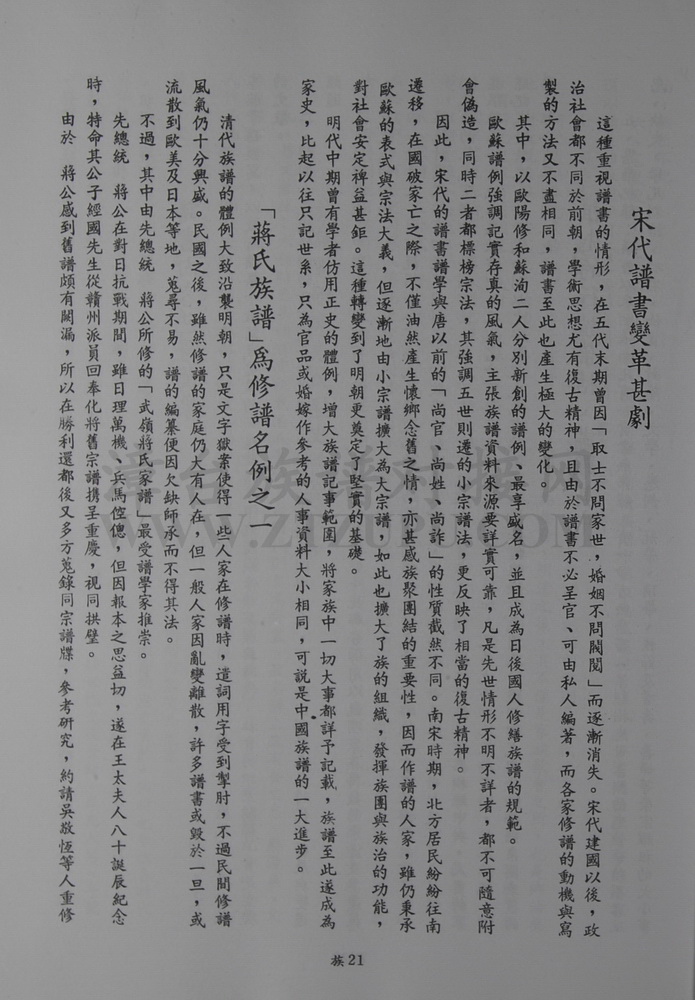 宋代譜書變革甚劇
這種重視譜書的情形，在五代末期曾因「取士不問家世，婚姻不問閥閱」而逐漸消失。宋代建國以後，政
治社會都不同於前朝，學術思想尤有復古精神，且由於譜書不必呈官、可由私人編著，而各家修譜的動機與寫
製的方法又不盡相同，譜書至此也產生極大的變化。
其中，以歐陽修和蘇洵二人分別新創的譜例、最享盛名，並且成為日後國人修繕族譜的規範。
歐蘇譜例強調記實存真的風氣，主張族譜資料來源要詳實可靠，凡是先世情形不明不詳者，都不可隨意附
會偽造，同時二者都標榜宗法，其強調五世則遷的小宗譜法，更反映了相當的復古精神。
因此，宋代的譜書譜學與唐以前的「尚官、尚姓、尚詐」的性質截然不同。南宋時期，北方居民紛紛往南
遷移，在國破家亡之際，不僅油然產生懷鄉念舊之情，亦甚感族聚團結的重要性，因而作譜的人家，雖仍秉承
歐蘇的表式與宗法大義，但逐漸地由小宗譜擴大為大宗譜，如此也擴大了族的組織，發揮族團與族治的功能，
對社會安定裨益甚鉅。這種轉變到了明朝更奠定了堅實的基礎。
明代中期曾有學者仿用正史的體例，增大族譜記事範圍，將家族中一切大事都詳予記載，族譜至此遂成為
家史，比起以往只記世系，只為官品或婚嫁作參考的人事資料大小相同，可說是中國族譜的一大進步。
「蔣氏族譜」為修譜名例之一
清代族譜的體例大致沿襲明朝，只是文字獄案使得一些人家在修譜時，遣詞用字受到掣肘，不過民間修譜
風氣仍十分興盛。民國之後，雖然修譜的家庭仍大有人在，但一般人家因亂變離散，許多譜書或毀於一旦，或
流散到歐美及日本等地，蒐尋不易，譜的編纂便因欠缺師承而不得其法。
不過，其中由先總統　蔣公所修的「武嶺蔣氏家譜」最受譜學家推崇。
先總統　蔣公在對日抗戰期間，雖日理萬機、兵馬倥傯，但因報本之思益切，遂在王太夫人八十誕辰紀念
時，特命其公子經國先生從贛州派員回奉化將舊宗譜携呈重慶，視同拱璧。
由於　蔣公感到舊譜頗有闕漏，所以在勝利還都後又多方蒐錄同宗譜牒，參考研究，約請吳敬恆等人重修
族21